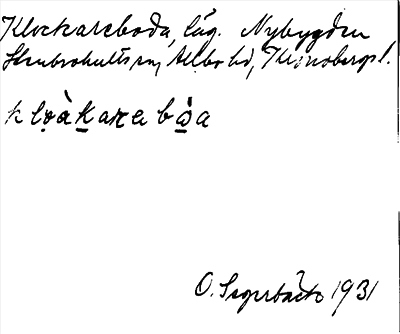 Klockareboda, läg. Nybygden
Stenbrohults sn, Allbo hd, Kronobergs l.
klo̤àk̲arɐ bò̲a
O. Segerbäck 1931